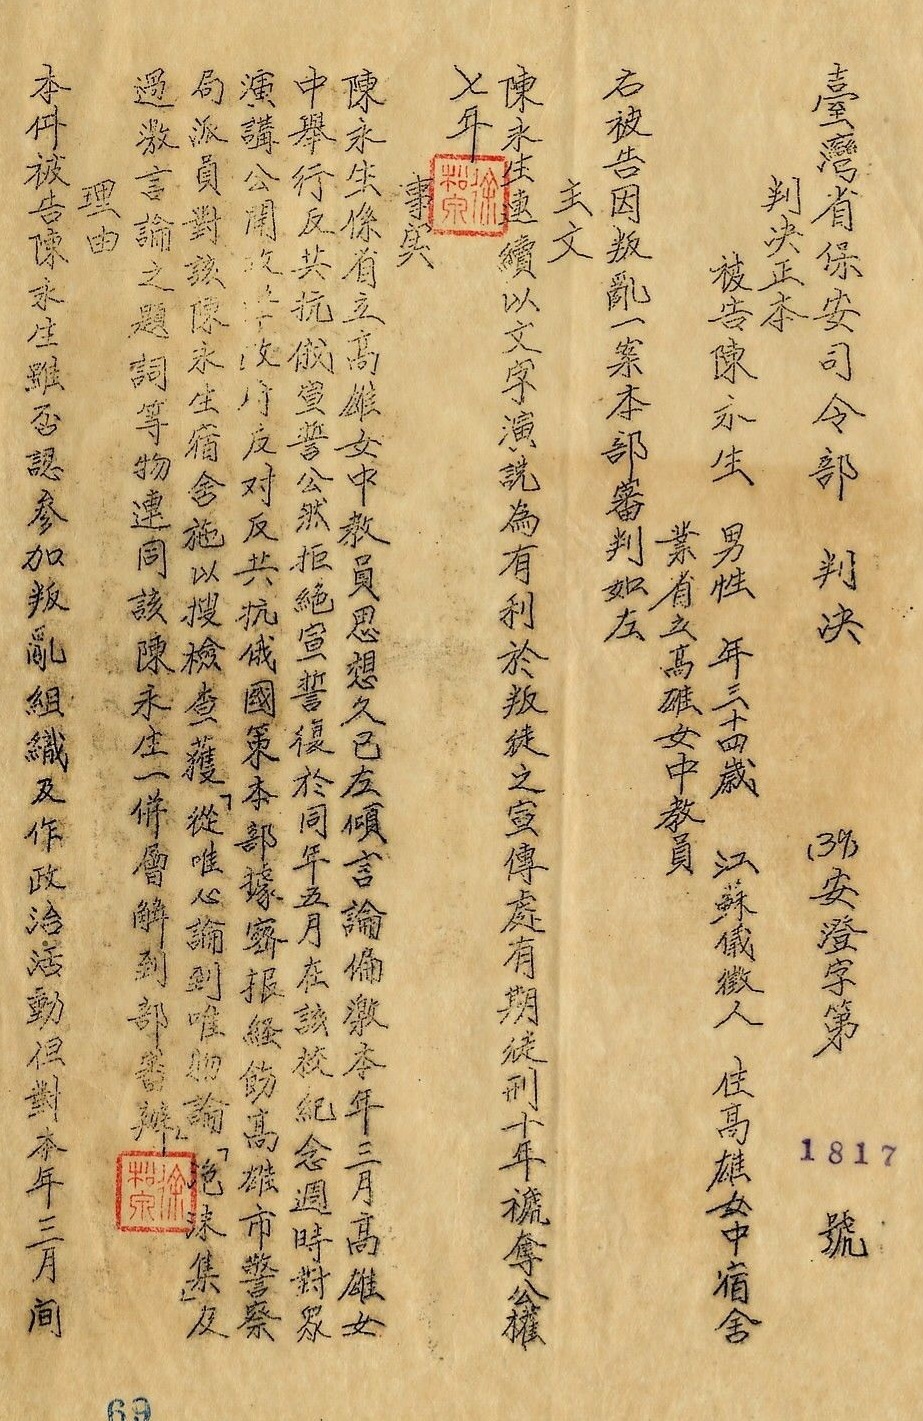 臺灣省保安司令部 判决 (39)安澄字第 1817 號
判决正本
被告陳永生 男性 年三十四歲 江蘇儀徵人 住高雄女中宿舍
業省立高雄女中教員
右被告因叛亂一案本部審判如左
主文
陳永生連續以文字演説為有利於叛徒之宣傳處有期徒刑十年褫奪公權
七年
事实
陳永生係省立高雄女中教員思想久已左傾言論偏激本年三月高雄女
中舉行反共抗俄宣誓公然拒絶宣誓復於同年五月在該校紀念週時對眾
演講公開攻 政府反对反共抗俄國策本部據密报経飭高雄市警察
局派員對該陳永生宿舍施以搜檢查獲「從唯心論到唯物論」「泡沫集」及
過激言論之題詞等物連同該陳永生一併層解到部審辦
理由
本件被告陳永生雖否認參加叛亂組織及作政治活動但對本年三月间
徐松泉
徐松泉
69